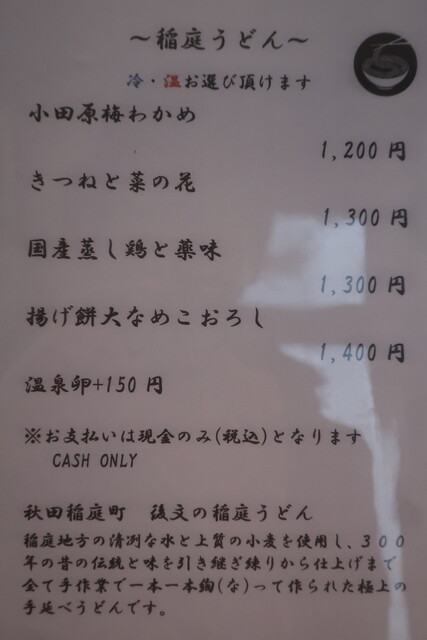 ～稲庭うどん～
冷・温お選び頂けます
小田原梅わかめ
1,200 円
きつねと菜の花
1,300 円
国産蒸し鶏と薬味
1,300 円
揚げ餅大なめこおろし
1,400 円
温泉卵+150 円
※お支払いは現金のみ(税込)となります
CASH ONLY
秋田稲庭町　後文の稲庭うどん
稲庭地方の清冽な水と上質の小麦を使用し、３００
年の昔の伝統と味を引き継ぎ練りから仕上げまで
全て手作業で一本一本綯(な)って作られた極上の
手延べうどんです。